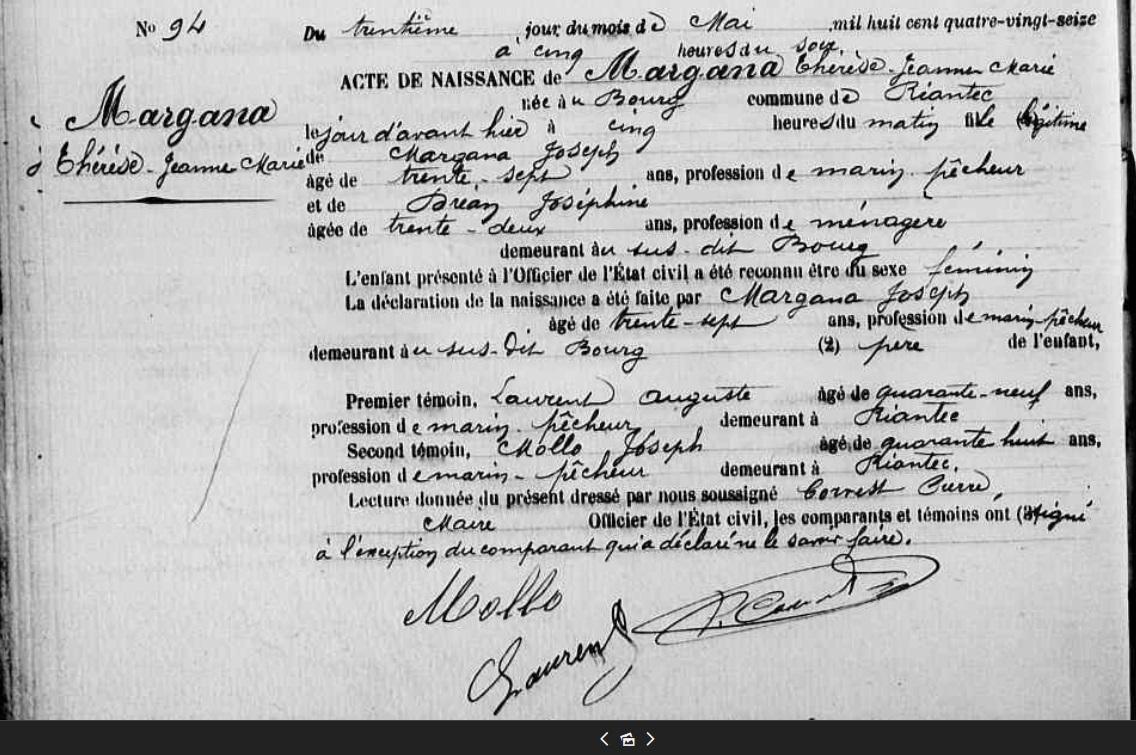 No 94
Du trentième jour du mois de Mai mil huit cent quatre-vingt-seize
à cinq heures du soir,
ACTE DE NAISSANCE de Margana Thérèse-Jeanne Marie
née au Bourg commune de Riantec
le jour d'avant hier à cinq heures du matin fille légitime
de Margana Joseph
âgé de trente-sept ans, profession de marin pêcheur
et de Joséphine
âgée de trente-deux ans, profession de ménagère
demeurant au sus-dit Bourg
L'enfant présenté à l'Officier de l'État civil a été reconnu être du sexe féminin
La déclaration de la naissance a été faite par Margana Joseph
âgé de trente-sept ans, profession de marin pêcheur
demeurant au sus-dit Bourg (2) père de l'enfant,
Premier témoin, Laurent Auguste âgé de quarante-neuf ans,
profession de marin-pêcheur demeurant à Riantec
Second témoin, Mollo Joseph âgé de quarante huit ans,
profession de marin-pêcheur demeurant à Riantec.
Lecture donnée du présent dressé par nous soussigné Pierre,
Maire Officier de l'État civil, les comparants et témoins ont signé
à l'exception du comparant qui a déclaré ne le savoir faire.
Margana
Thérèse-Jeanne Marie
Mollo
Laurent